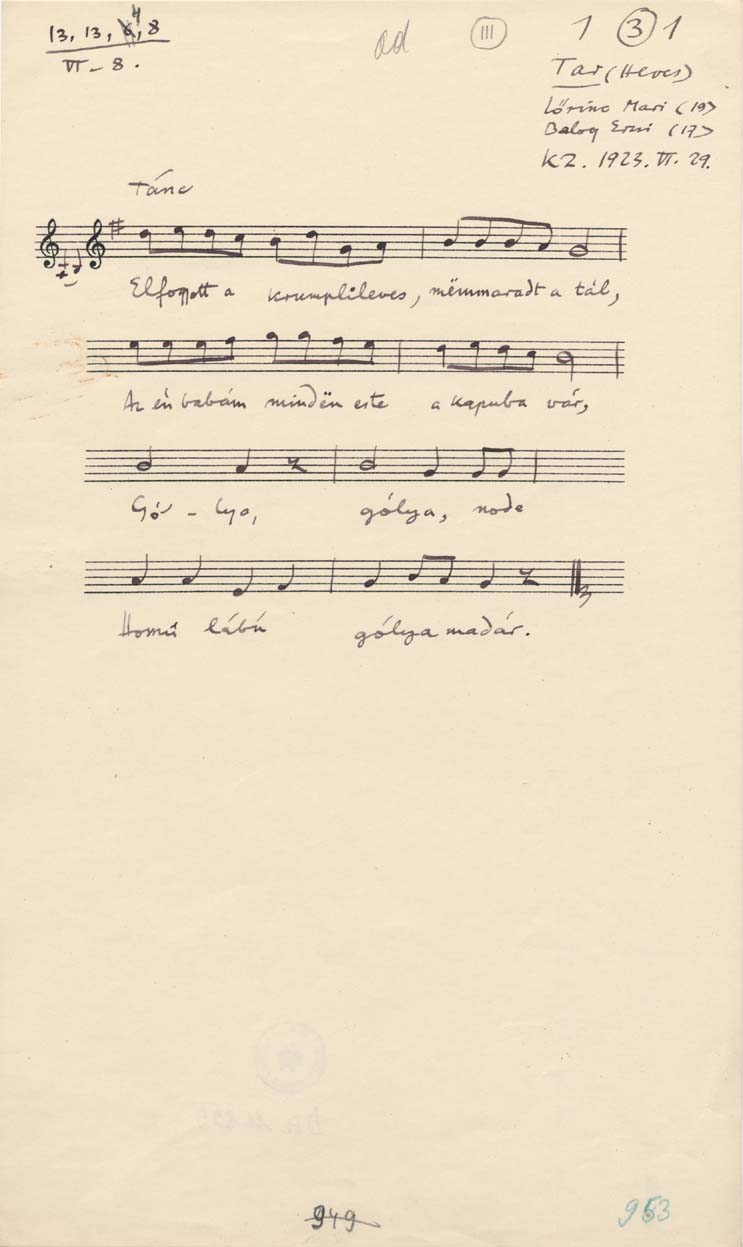 13, 13, 4, 8
VI - 8.
ad
III
1 3 1
Tar (Heves)
Lőrinc Mari (19)
Balog Erzsi (17)
KZ. 1923. VI. 29.
Tánc
Elfogyott a krumplileves, mëmmaradt a tál,
Az én babám mindën este a kapuba vár,
Gó - lya, gólya, node
lábú gólya madár.
949
953